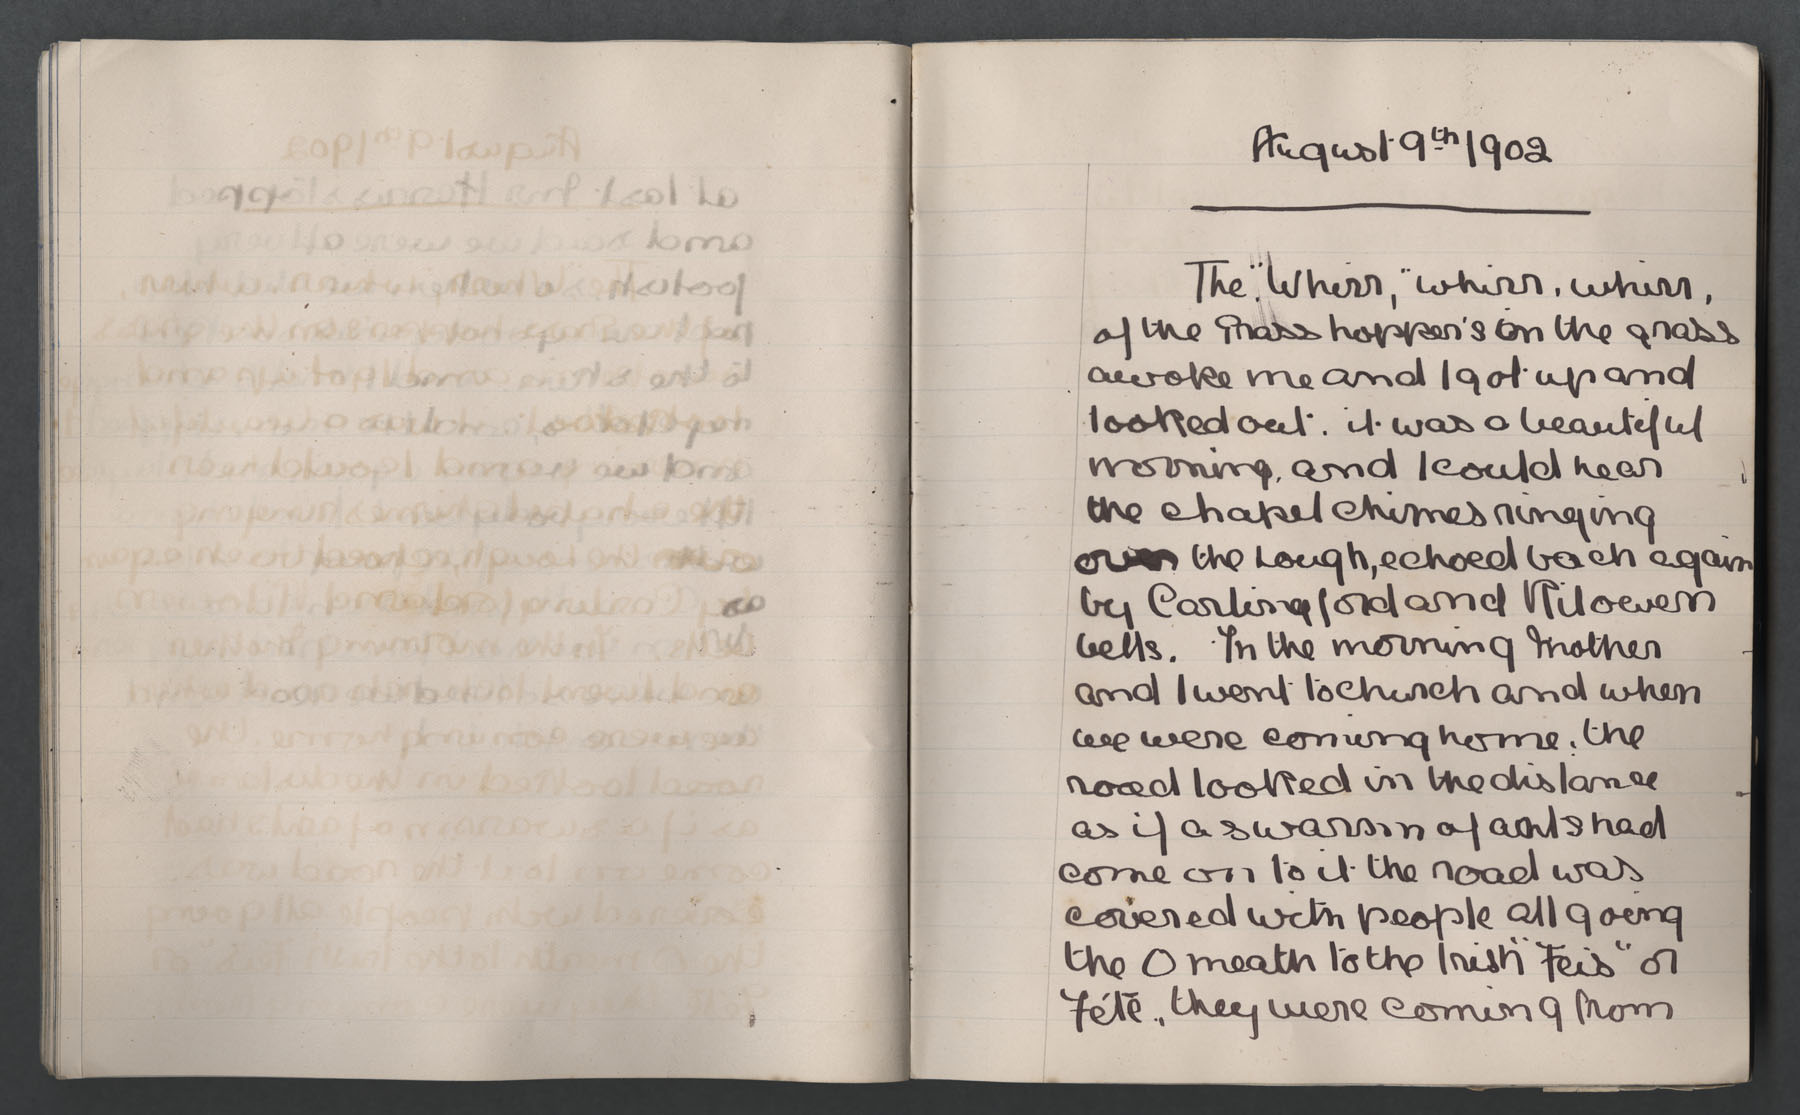 August 9th 1902
The "Whirr," whirr, whirr,
of the Grass hopper's in the grass
awoke me and I got up and
looked out. it was a beautiful
morning, and I could hear
the chapel chimes ringing
over the Lough, echoed back again
by Carlingford and Kilowen
bells. In the morning Mother
and I went to church and when
we were coming home, the
road looked in the distance
as if a swarm of ants had
come on to it the road was
covered with people all going
the Omeath to the Irish "Feis" or
Féte, they were coming from